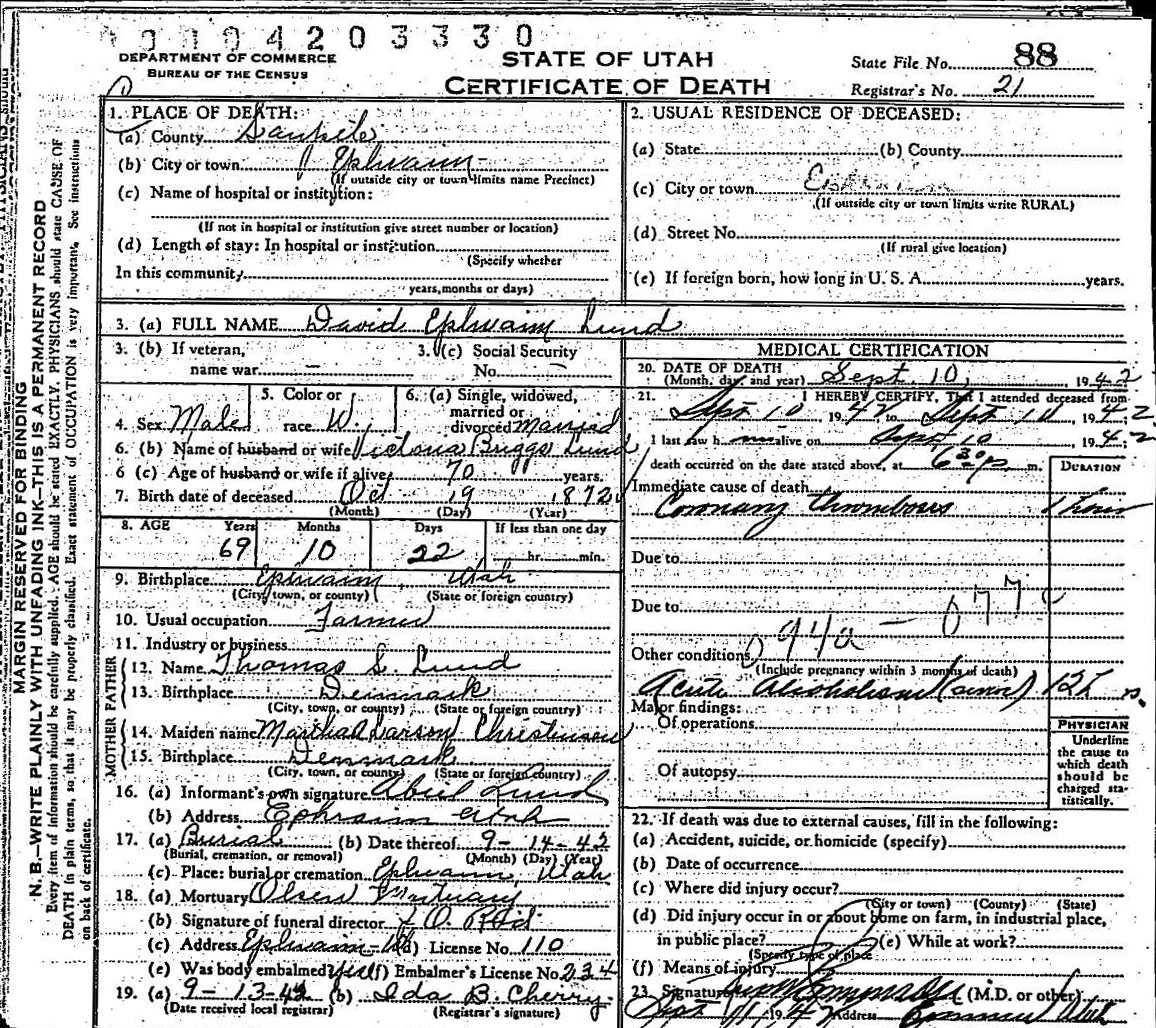 0 0 1 0 4 2 0 3 3 3 0
DEPARTMENT OF COMMERCE
BUREAU OF THE CENSUS
STATE OF UTAH
CERTIFICATE OF DEATH
State File No. 88
Registrar's No. 21
MARGIN RESERVED FOR BINDING
N. B.—WRITE PLAINLY WITH UNFADING INK—THIS IS A PERMANENT RECORD
Every item of information should be carefully supplied. AGE should be stated EXACTLY. PHYSICIANS should state CAUSE OF
DEATH in plain terms, so that it may be properly classified. Exact statement of OCCUPATION is very important. See instructions
on back of certificate.
1. PLACE OF DEATH:
(a) County Sanpete
(b) City or town Ephraim
(If outside city or town limits name Precinct)
(c) Name of hospital or institution:
(If not in hospital or institution give street number or location)
(d) Length of stay: In hospital or institution
(Specify whether
In this community
years, months or days)
2. USUAL RESIDENCE OF DECEASED:
(a) State (b) County
(c) City or town Ephraim
(If outside city or town limits write RURAL)
(d) Street No.
(If rural give location)
(e) If foreign born, how long in U. S. A. years.
3. (a) FULL NAME David Ephraim Lund
3. (b) If veteran,
name war. —
3. (c) Social Security
No. —
4. Sex Male
5. Color or
race W.
6. (a) Single, widowed,
married or
divorced Married
6. (b) Name of husband or wife Victoria Briggs Lund
6 (c) Age of husband or wife if alive 70 years.
7. Birth date of deceased Oct 19 1872
(Month) (Day) (Year)
8. AGE Years Months Days If less than one day
69 10 22 hr. min.
9. Birthplace Ephraim, Utah
(City, town, or county) (State or foreign country)
10. Usual occupation Farmer
11. Industry or business
FATHER
12. Name Thomas L. Lund
13. Birthplace Denmark
(City, town, or county) (State or foreign country)
MOTHER
14. Maiden name Martha Larson Christensen
15. Birthplace Denmark
(City, town, or county) (State or foreign country)
16. (a) Informant's own signature Lund
(b) Address Ephraim Utah
17. (a) Burial (b) Date thereof 9-14-42
(Burial, cremation, or removal) (Month) (Day) (Year)
(c) Place: burial or cremation Ephraim, Utah
18. (a) Mortuary Olsen Mortuary
(b) Signature of funeral director
(c) Address Ephraim (d) License No. 110
(e) Was body embalmed? yes (f) Embalmer's License No. 234
19. (a) 9-13-42 (b) Ida B. Cherry
(Date received local registrar) (Registrar's signature)
MEDICAL CERTIFICATION
20. DATE OF DEATH
(Month, day and year) Sept. 10, 1942
21. I HEREBY CERTIFY, That I attended deceased from
Sept 10 1942 to Sept 10, 1942;
I last saw h im alive on Sept 10 1942;
death occurred on the date stated above, at 6 30 p m.
DURATION
Immediate cause of death
Coronary thrombosis 1 hour
Due to
Due to
094a - 077c
Other conditions
(Include pregnancy within 3 months of death)
Acute Alcoholism 12
Major findings:
Of operations
Of autopsy
PHYSICIAN
Underline
the cause to
which death
should be
charged sta-
tistically.
22. If death was due to external causes, fill in the following:
(a) Accident, suicide, or homicide (specify)
(b) Date of occurrence
(c) Where did injury occur?
(City or town) (County) (State)
(d) Did injury occur in or about home on farm, in industrial place,
in public place? (e) While at work?
(Specify type of place
(f) Means of injury
23. Signature (M.D. or other)
Sept 1942 Address Utah